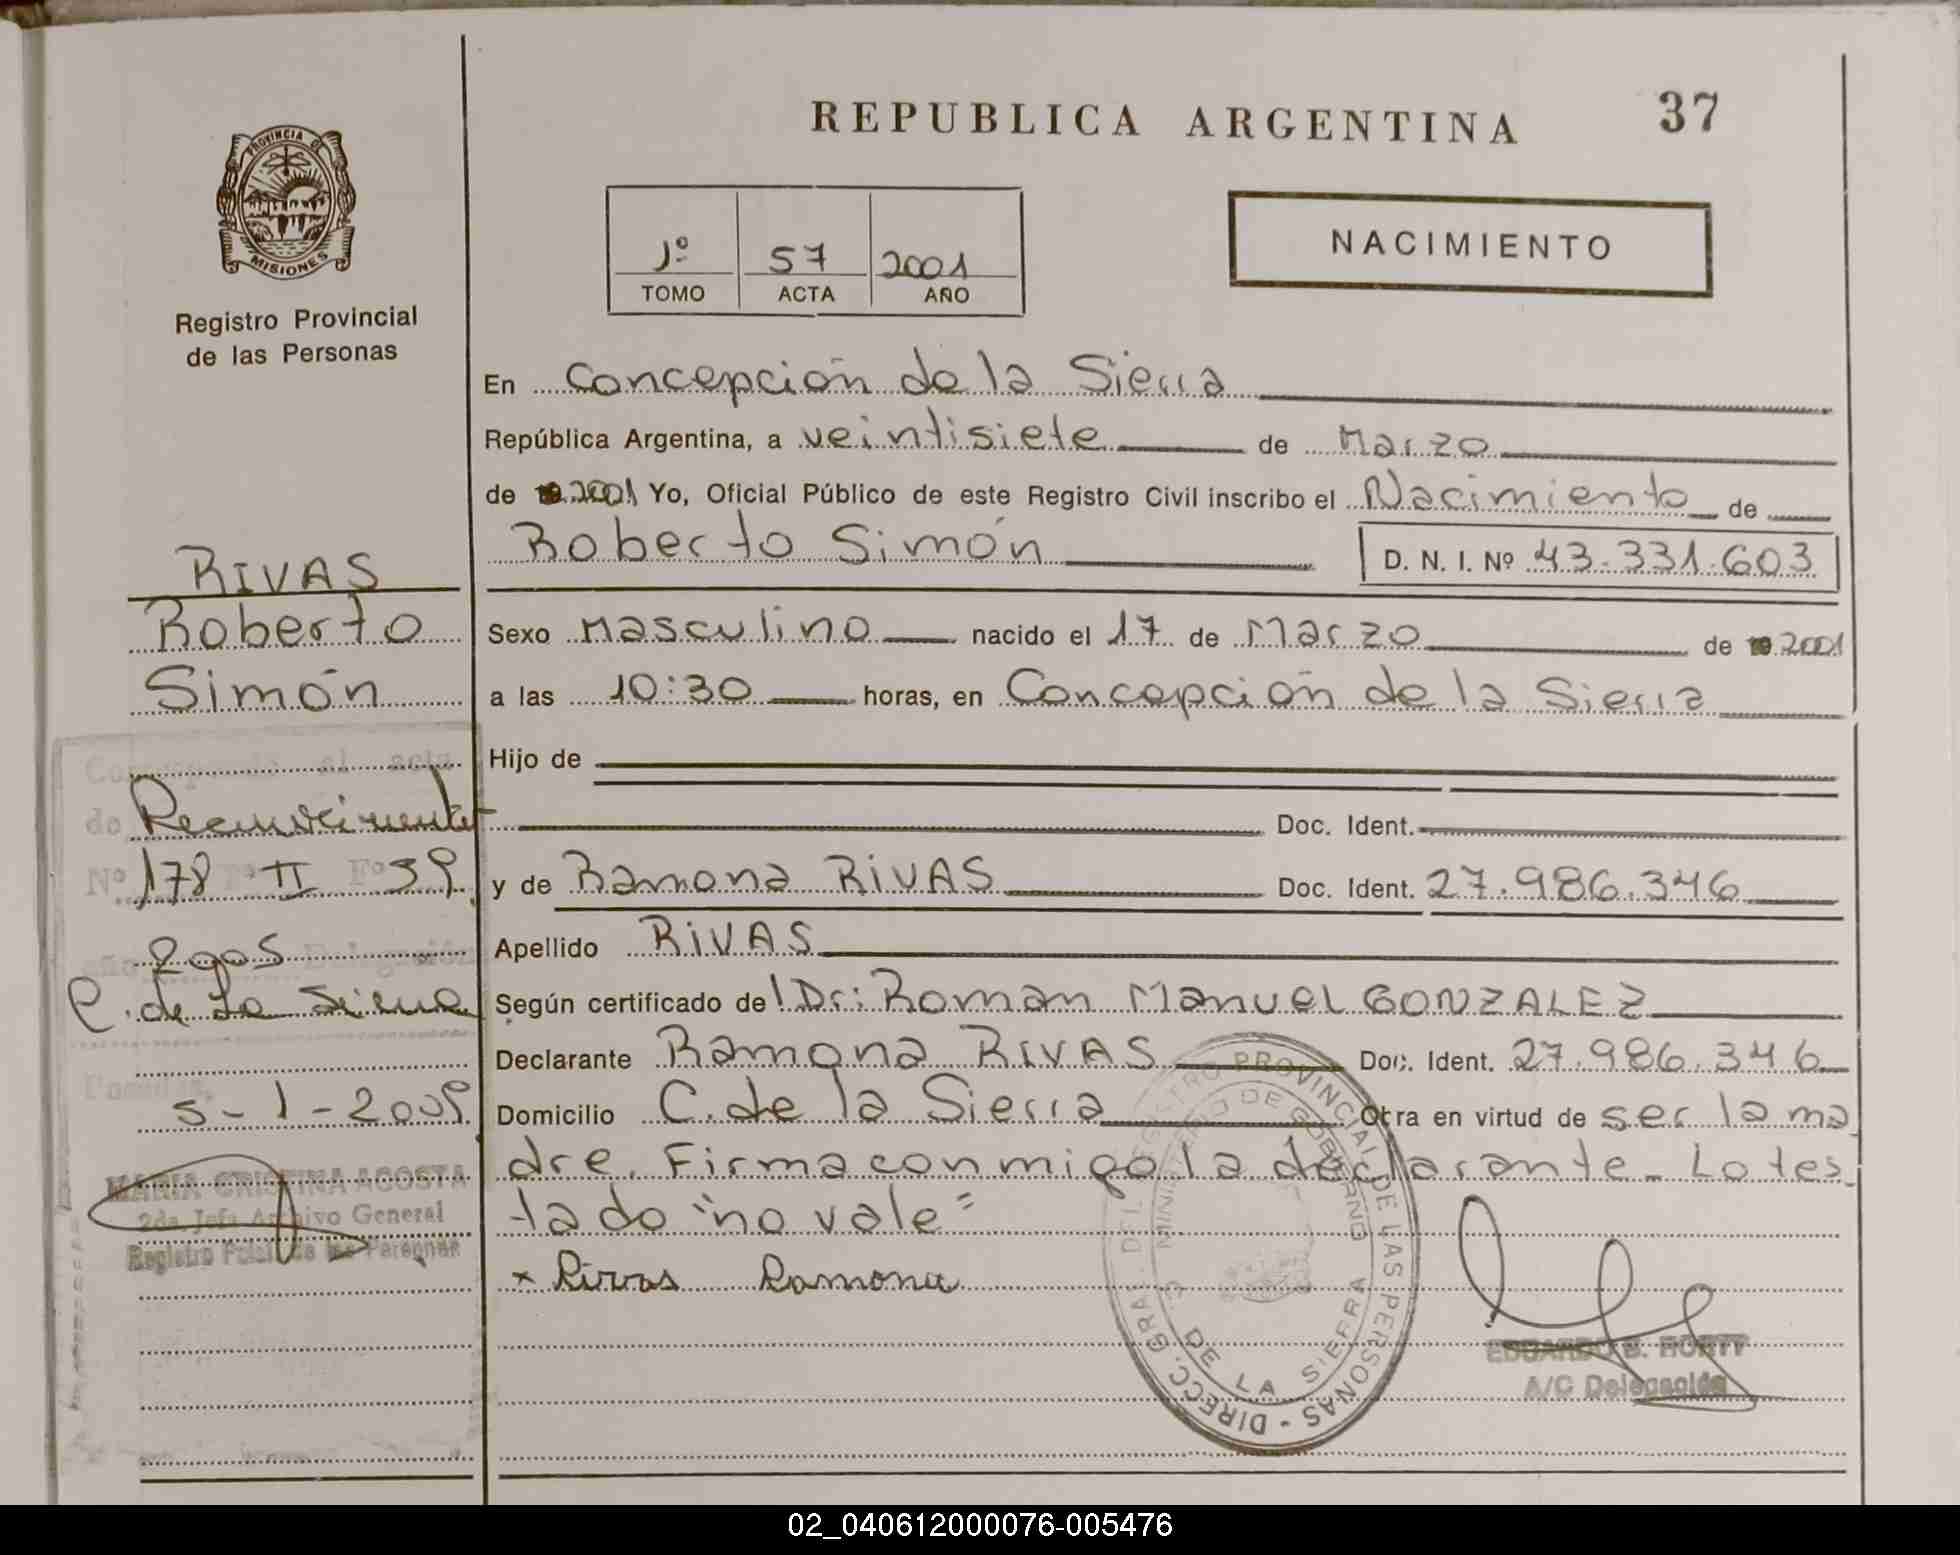 REPUBLICA ARGENTINA 37
PROVINCIA DE
MISIONES
Registro Provincial
de las Personas
1º 57 2001
TOMO ACTA AÑO
NACIMIENTO
En Concepción de la Sierra
República Argentina, a veintisiete de Marzo
de 2001 Yo, Oficial Público de este Registro Civil inscribo el Nacimiento de
Roberto Simón D. N. I. Nº 43.331.603
Sexo Masculino nacido el 17 de Marzo de 2001
a las 10:30 horas, en Concepción de la Sierra
Hijo de
Doc. Ident.
y de Ramona RIVAS Doc. Ident. 27.986.346
Apellido RIVAS
Según certificado de Dr: Roman Manuel GONZALEZ
Declarante Ramona RIVAS Doc. Ident. 27.986.346
Domicilio C. de la Sierra Otra en virtud de ser la ma
dre. Firma conmigo la declarante_ Lo tes
tado "no vale"
x Rivas Ramona
RIVAS
Roberto
Simón
Corresponde al acta
de Reconocimiento
Nº 178 Tº II Fº 39
año Delegación
C. de La Sierra
Posadas,
5-1-2009
MARIA CRISTINA ACOSTA
2da. Jefa Archivo General
Registro Pcial. de las Personas
DIRECC. GRAL. DEL REGISTRO PROVINCIAL DE LAS PERSONAS
MINISTERIO DE GOBIERNO
C. DE LA SIERRA
A/C Delegación
02_040612000076-005476